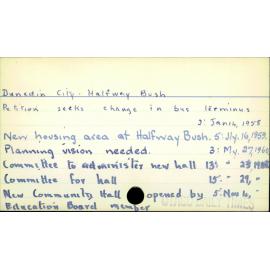 Dunedin City - Halfway Bush
Petition seeks change in bus terminus
3: Jan 14, 1958
New housing area at Halfway Bush. 5: Jly. 16, 1959.
Planning vision needed. 3: My. 27, 1960
Committee to administer new hall 13: " 23
Committee for hall 15: " 29, "
New Community Hall opened by 5: Nov 14, "
Education Board member